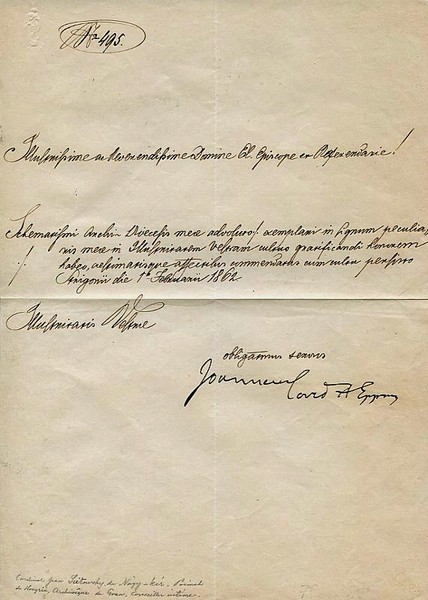 No 495.
Illustrissime ac Reverendissime Domine El. Episcope et Referendarie!
Schematismi Archi Dioecesis meae advoluto ·/· exemplari in signum peculia,
ris mei in Illustritatem Vestram cultus gratificandi honorem
·/· habeo, aestimatisque affectibus commendatus cum cultu persisto
Strigonii die 1a Februarii 1862
Illustritatis Vestrae
obligatus servus
Joannes Card. A Eppus
Cardinal Jean Scitovszky de Nagy-kér. Primat
de Hongrie, Archevêque de Gran, Conseiller intime.